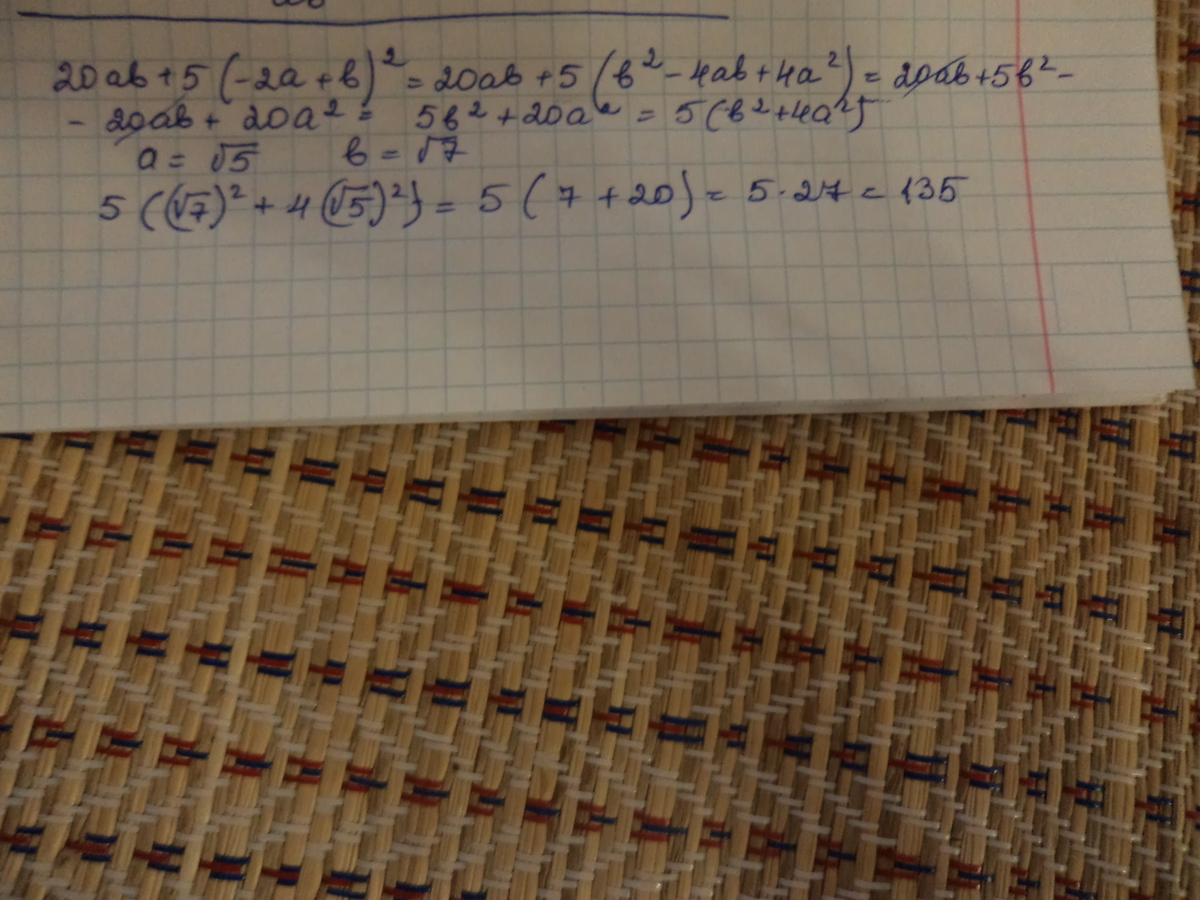 20ab + 5 (-2a + b)² = 20ab + 5 (b² - 4ab + 4a²) = 20ab + 5b² -
- 20ab + 20a² = 5b² + 20a² = 5(b² + 4a²)
a = √5 b = √7
5 ((√7)² + 4(√5)²) = 5 (7 + 20) = 5·27 = 135